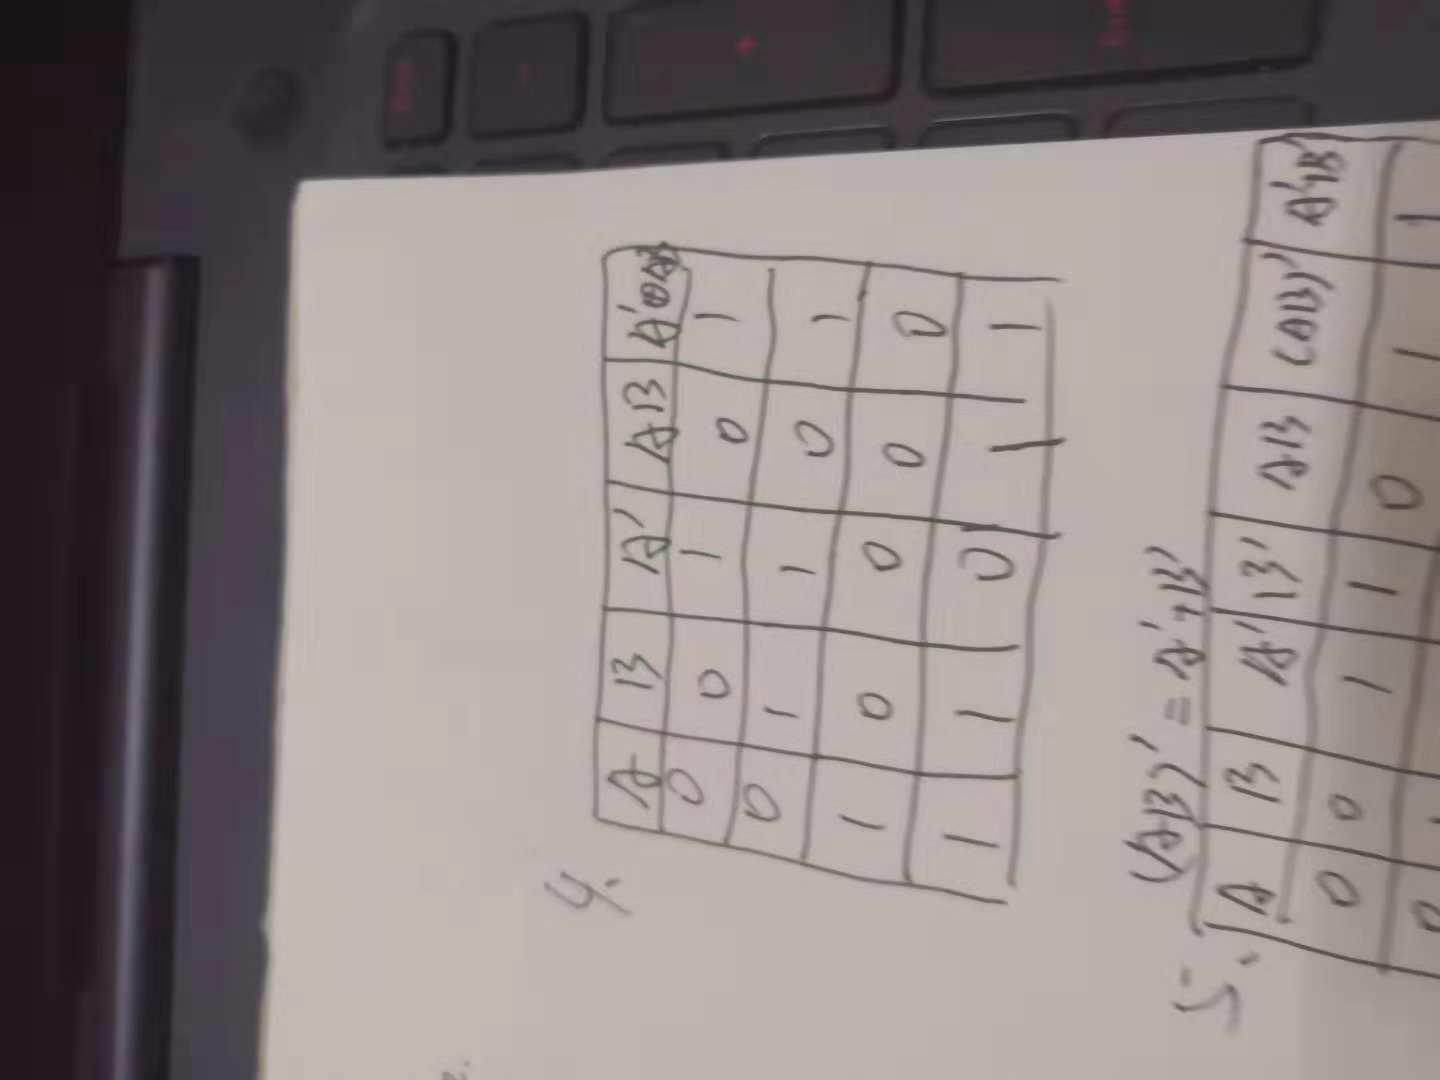 4.
A B A' AB A'⊕AB
0 0 1 0 1
0 1 1 0 1
1 0 0 0 0
1 1 0 1 1
(AB)' = A'+B'
5.
A B A' B' AB (AB)' A'+B'
0 0 1 1 0 1 1
0